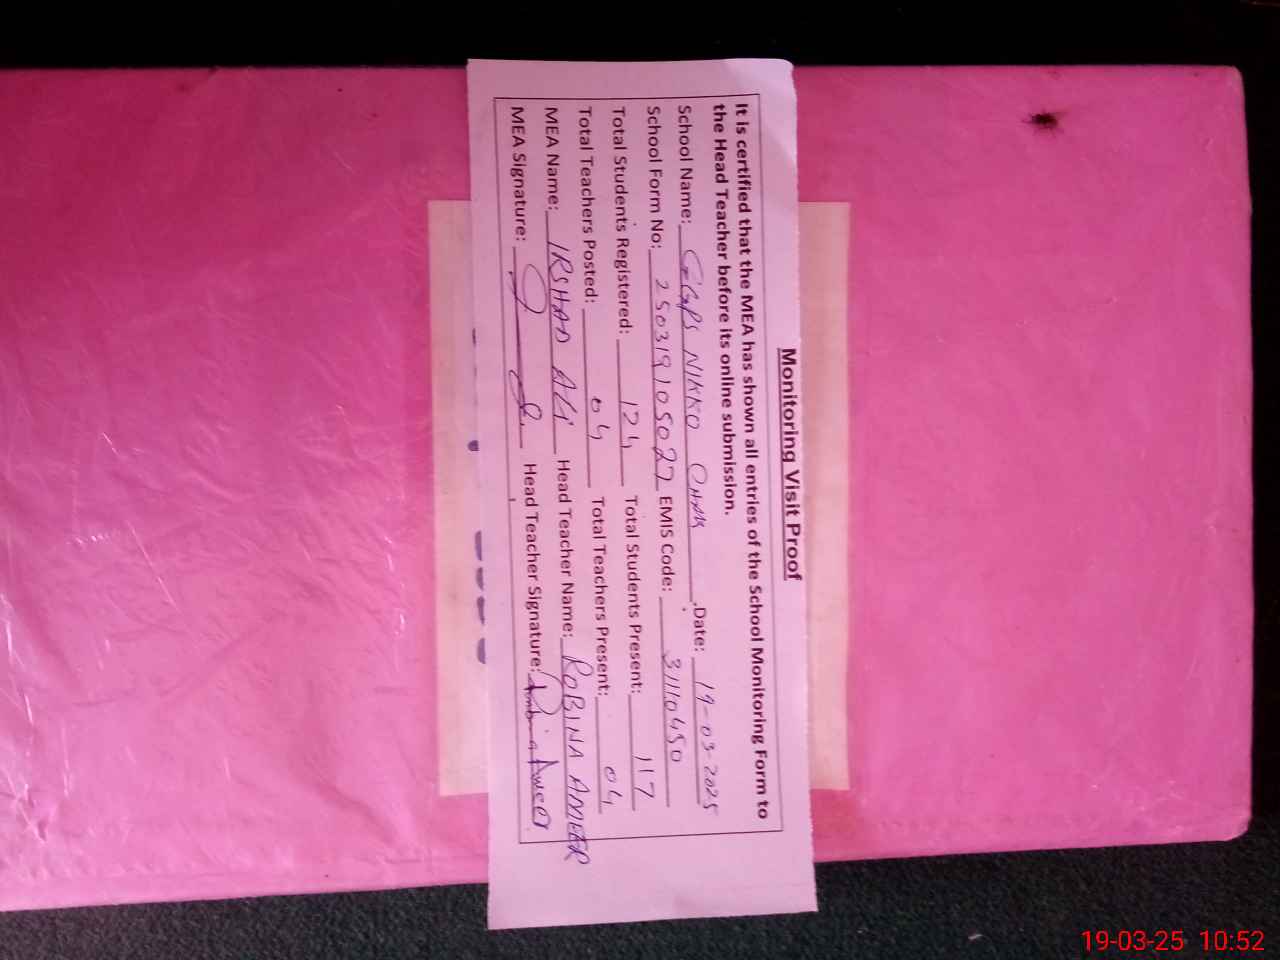 Monitoring Visit Proof
It is certified that the MEA has shown all entries of the School Monitoring Form to
the Head Teacher before its online submission.
School Name: GGPS NIKKO CHAK ,Date: 19-03-2025
School Form No: 250319105027 EMIS Code: 31110450
Total Students Registered: 124 Total Students Present: 117
Total Teachers Posted: 04 Total Teachers Present: 04
MEA Name: IRSHAD ALI Head Teacher Name: ROBINA AMEER
MEA Signature: Head Teacher Signature: Robina Ameer
19-03-25 10:52